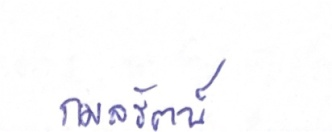 กมลรัตน์